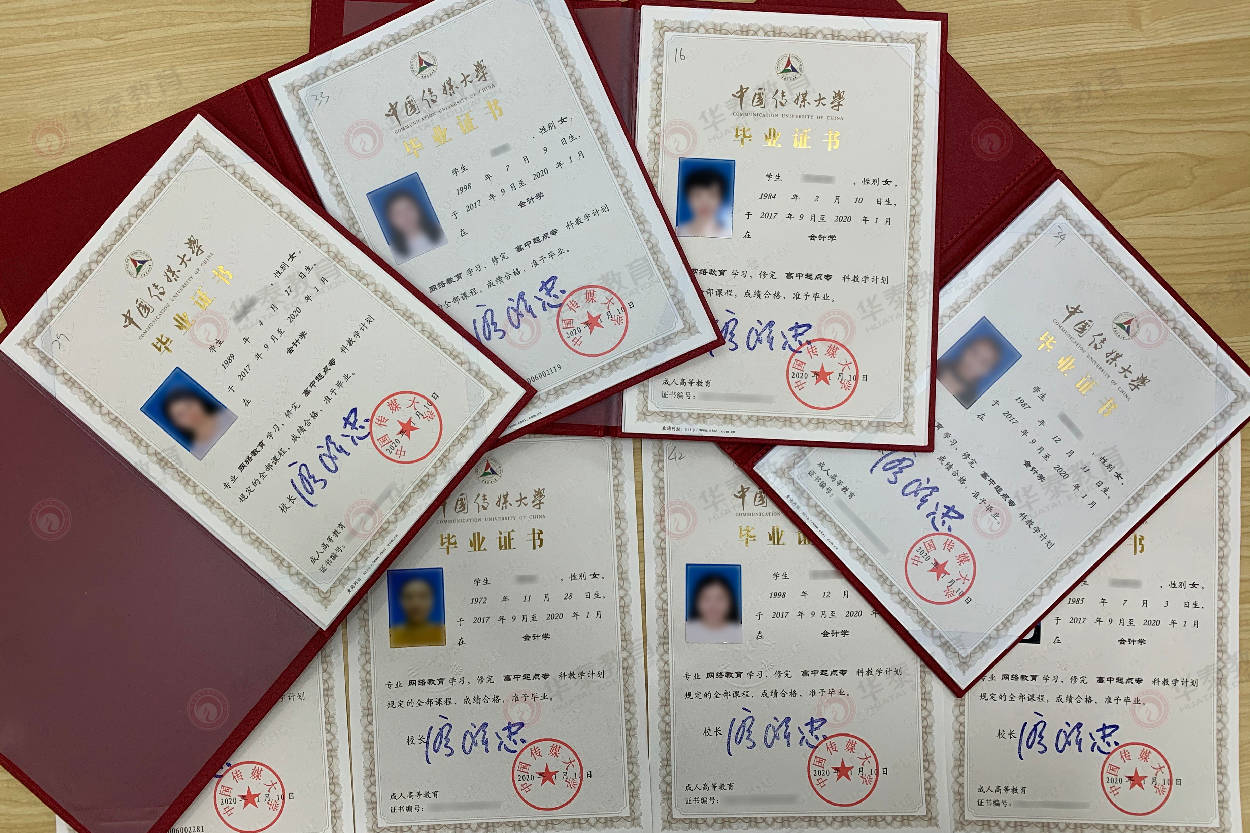 29
中国传媒大学
COMMUNICATION UNIVERSITY OF CHINA
毕业证书
学生 ,性别 女,
1989 年 4 月 17 日生,
于 2017 年 9 月至 2020 年 1 月
在 会计学
专业 网络教育 学习、修完 高中起点专 科教学计划
规定的全部课程,成绩合格,准予毕业。
校长
中国传媒大学
2020 年 1 月 10 日
成人高等教育
证书编号:
33
中国传媒大学
COMMUNICATION UNIVERSITY OF CHINA
毕业证书
学生 性别 女,
1998 年 7 月 9 日生,
于 2017 年 9 月至 2020 年 1 月
在 会计学
网络教育 学习、修完 高中起点专 科教学计划
全部课程,成绩合格,准予毕业。
中国传媒大学
2020 年 1 月 10 日
06002119
16
中国传媒大学
COMMUNICATION UNIVERSITY OF CHINA
毕业证书
学生 ,性别 女,
1984 年 2 月 10 日生,
于 2017 年 9 月至 2020 年 1 月
在 会计学
网络教育 学习、修完 高中起点专 科教学计划
全部课程,成绩合格,准予毕业。
中国传媒大学
2020 年 1 月 10 日
成人高等教育
证书编号:
34
中国传媒大学
COMMUNICATION UNIVERSITY OF CHINA
毕业证书
学生 ,性别 女,
1987 年 12 月 11 日生,
于 2017 年 9 月至 2020 年 1 月
在 会计学
育 学习、修完 高中起点专 科教学计划
课程,成绩合格,准予毕业。
中国传媒大学
2020 年 1 月 10 日
成人高等教育
证书编号:
中国传媒大学
COMMUNICATION UNIVERSITY OF CHINA
毕业证书
学生 ,性别 女,
1972 年 11 月 28 日生,
于 2017 年 9 月至 2020 年 1 月
在 会计学
专业 网络教育 学习、修完 高中起点专 科教学计划
规定的全部课程,成绩合格,准予毕业。
校长
中国传媒大学
2020 年 1 月 10 日
成人高等教育
证书编号:
42
中国
COMMUNICATION
毕业
学生
1998 年 12 月
于 2017 年 9 月至 2020 年
在 会计学
专业 网络教育 学习、修完 高中起点专 科教学计划
规定的全部课程,成绩合格,准予毕业。
校长
中国传媒大学
2020 年 1 月 10 日
成人高等教育
证书编号:
书
,性别 女,
1985 年 7 月 3 日生,
于 2017 年 9 月至 2020 年 1 月
在 会计学
专业 网络教育 学习、修完 高中起点专 科教学计划
规定的全部课程,成绩合格,准予毕业。
校长
中国传媒大学
2020 年 1 月 10 日
成人高等教育
证书编号:
计划
中国传媒大学
2020 年 1 月 10 日
06002281
华泰教育